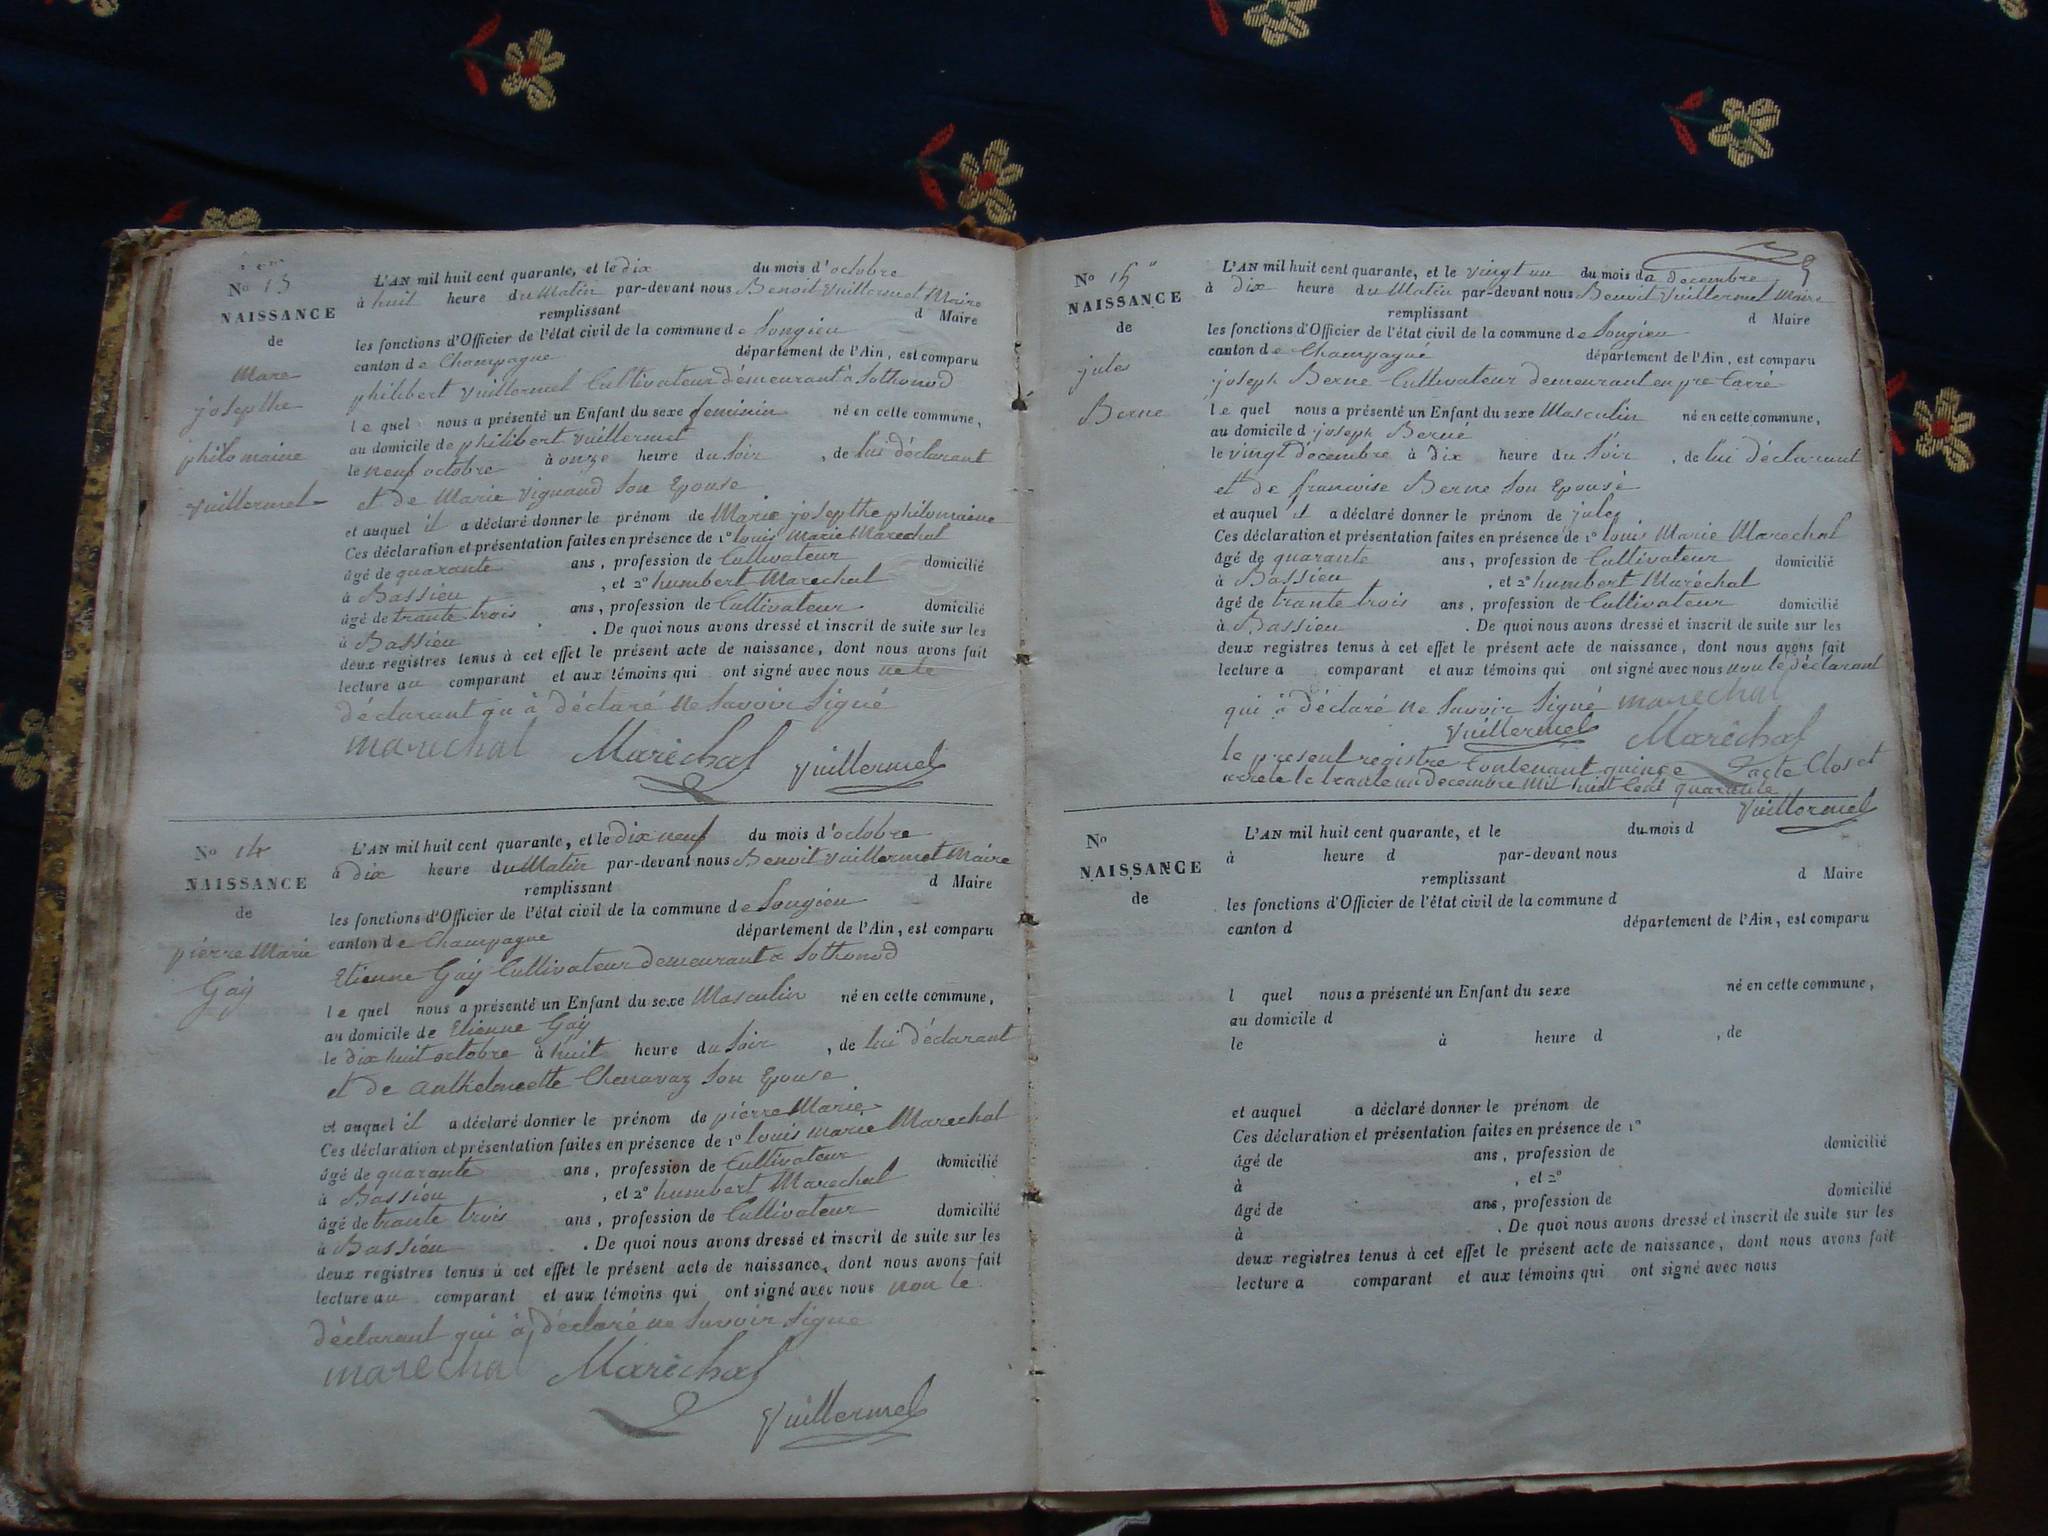 No 13
NAISSANCE
de
Mare
josepthe
philomaine
Vuillermet
L'AN mil huit cent quarante, et le dix du mois d'octobre
à huit heure du Matin par-devant nous Benoit Vuillermet Maire
remplissant d Maire
les fonctions d'Officier de l'état civil de la commune de Songieu
canton de Champagne département de l'Ain, est comparu
philibert Vuillermet Cultivateur démeurant à Sothonod
le quel nous a présenté un Enfant du sexe feminin né en cette commune,
au domicile de philibert Vuillermet
le neuf octobre à onze heure du Soir, de lui déclarant
et de Marie Vignand Son Epouse
et auquel il a déclaré donner le prénom de Marie josepthe philomaine
Ces déclaration et présentation faites en présence de 1° louis Marie Marechal
âgé de quarante ans, profession de Cultivateur domicilié
à Bassieu, et 2° humbert Marechal
âgé de trante trois ans, profession de Cultivateur domicilié
à Bassieu. De quoi nous avons dressé et inscrit de suite sur les
deux registres tenus à cet effet le présent acte de naissance, dont nous avons fait
lecture au comparant et aux témoins qui ont signé avec nous
déclarant qu à déclaré ne Savoir Signé
marechal Maréchal Vuillermet
No 14
NAISSANCE
de
pierre Marie
Gay
L'AN mil huit cent quarante, et le dix neuf du mois d'octobre
à dix heure du Matin par-devant nous Benoit Vuillermet Maire
remplissant d Maire
les fonctions d'Officier de l'état civil de la commune de Songieu
canton de Champagne département de l'Ain, est comparu
Etienne Gay Cultivateur demeurant a Sothonod
le quel nous a présenté un Enfant du sexe Masculin né en cette commune,
au domicile de Etienne Gay
le dix huit octobre à huit heure du Soir, de lui déclarant
et de anthelmette Chenavaz Son Epouse
et auquel il a déclaré donner le prénom de pierre Marie
Ces déclaration et présentation faites en présence de 1° louis marie Marechal
âgé de quarante ans, profession de Cultivateur domicilié
à Bassieu, et 2° humbert Marechal
âgé de trante trois ans, profession de Cultivateur domicilié
à Bassieu. De quoi nous avons dressé et inscrit de suite sur les
deux registres tenus à cet effet le présent acte de naissance, dont nous avons fait
lecture au comparant et aux témoins qui ont signé avec nous non le
déclarant qui à déclaré ne Savoir Signé
marechal Maréchal
Vuillermet
No 15
NAISSANCE
de
jules
Berne
L'AN mil huit cent quarante, et le vingt un du mois de decembre
à dix heure du Matin par-devant nous Benoit Vuillermet Maire
remplissant d Maire
les fonctions d'Officier de l'état civil de la commune de Songieu
canton de Champagne département de l'Ain, est comparu
joseph Berne Cultivateur demeurant en pre Carré
le quel nous a présenté un Enfant du sexe Masculin né en cette commune,
au domicile d joseph Berne
le vingt décembre à dix heure du Soir, de lui déclarant
et de francoise Berne Son Epouse
et auquel il a déclaré donner le prénom de jules
Ces déclaration et présentation faites en présence de 1° louis Marie Marechal
âgé de quarante ans, profession de Cultivateur domicilié
à Bassieu, et 2° humbert Maréchal
âgé de trante trois ans, profession de Cultivateur domicilié
à Bassieu. De quoi nous avons dressé et inscrit de suite sur les
deux registres tenus à cet effet le présent acte de naissance, dont nous avons fait
lecture a comparant et aux témoins qui ont signé avec nous non le déclarant
qui à déclaré ne Savoir Signé marechal
Vuillermet Maréchal
le present registre Contenant quinze acte Clos et
arrete le trante un decembre Mil huit Cent quarante
Vuillermet
No
NAISSANCE
de
L'AN mil huit cent quarante, et le du mois d
à heure d par-devant nous
remplissant d Maire
les fonctions d'Officier de l'état civil de la commune d
canton d département de l'Ain, est comparu
l quel nous a présenté un Enfant du sexe né en cette commune,
au domicile d
le à heure d, de
et auquel a déclaré donner le prénom de
Ces déclaration et présentation faites en présence de 1°
âgé de ans, profession de domicilié
à, et 2°
âgé de ans, profession de domicilié
à. De quoi nous avons dressé et inscrit de suite sur les
deux registres tenus à cet effet le présent acte de naissance, dont nous avons fait
lecture a comparant et aux témoins qui ont signé avec nous